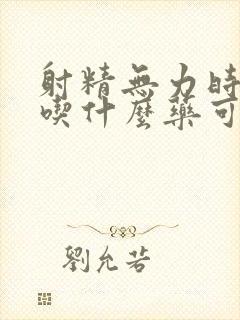 射精無力時
喫什麼藥可
劉允若